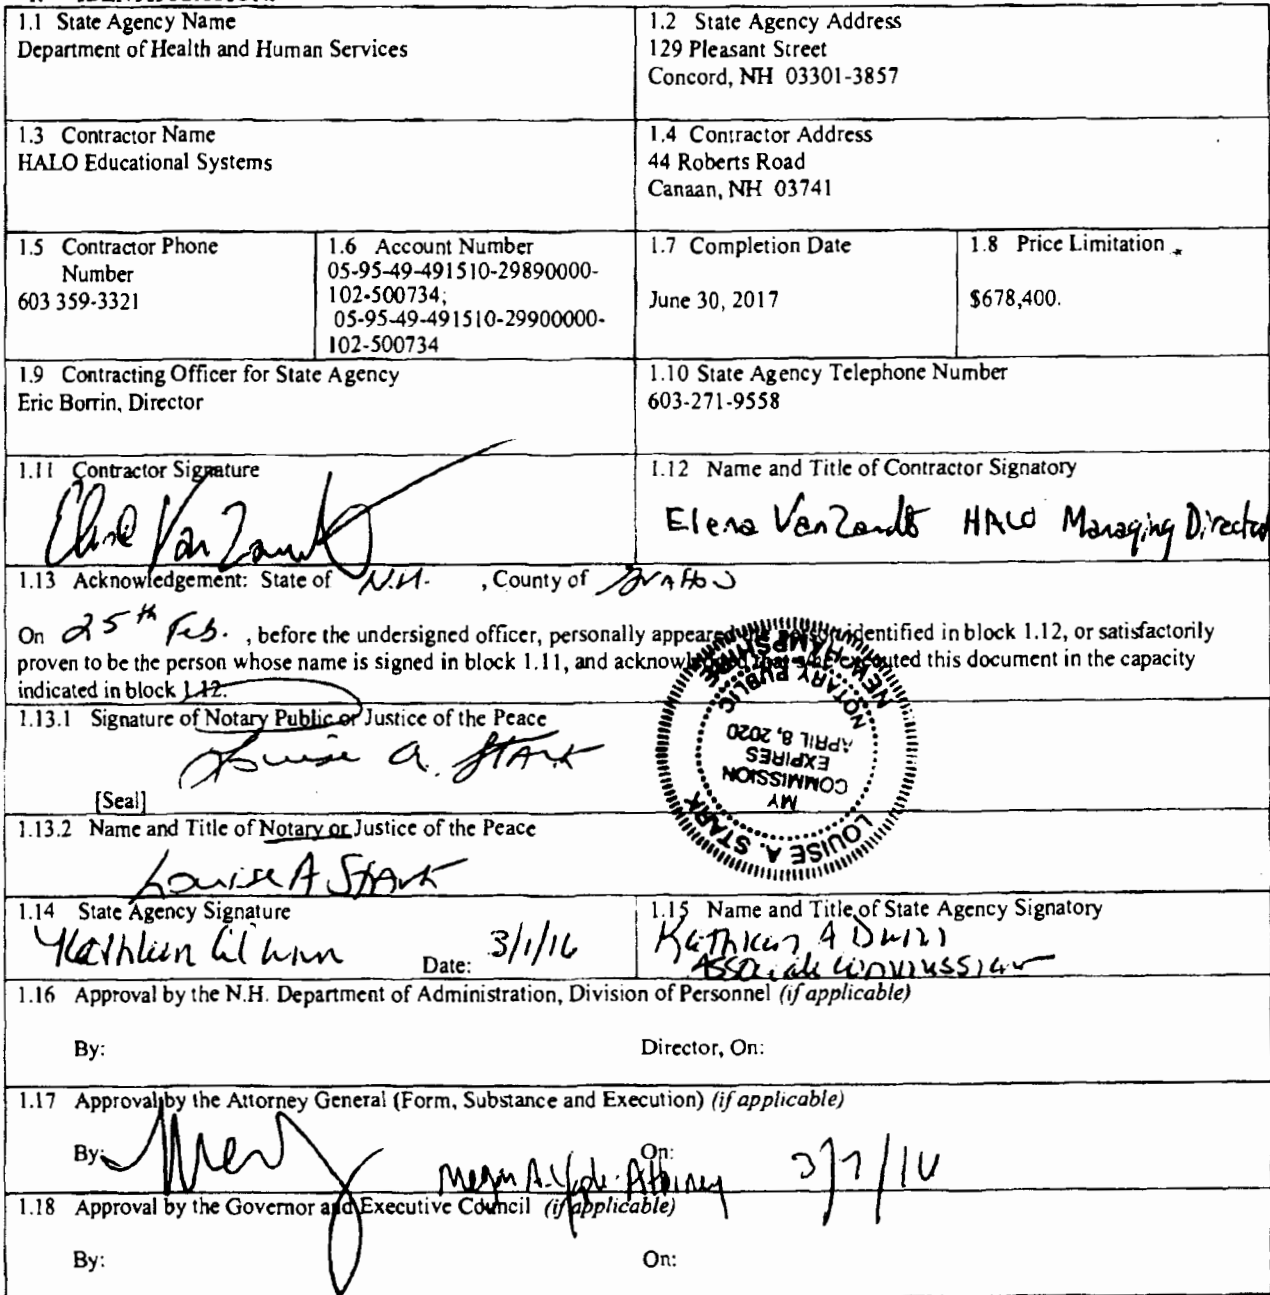 1.1 State Agency Name
Department of Health and Human Services
1.2 State Agency Address
129 Pleasant Street
Concord, NH 03301-3857
1.3 Contractor Name
HALO Educational Systems
1.4 Contractor Address
44 Roberts Road
Canaan, NH 03741
1.5 Contractor Phone
Number
603 359-3321
1.6 Account Number
05-95-49-491510-29890000-
102-500734;
05-95-49-491510-29900000-
102-500734
1.7 Completion Date
June 30, 2017
1.8 Price Limitation
$678,400.
1.9 Contracting Officer for State Agency
Eric Borrin, Director
1.10 State Agency Telephone Number
603-271-9558
1.11 Contractor Signature
VanZandt
1.12 Name and Title of Contractor Signatory
Elena VanZandt HALO Managing Director
1.13 Acknowledgement: State of N.H. , County of Grafton
On 25th Feb. , before the undersigned officer, personally appeared identified in block 1.12, or satisfactorily
proven to be the person whose name is signed in block 1.11, and executed this document in the capacity
indicated in block 1.12.
1.13.1 Signature of Notary Public or Justice of the Peace
Louise A. Stark
[Seal]
NOTARY PUBLIC
NEW HAMPSHIRE
MY
COMMISSION
EXPIRES
APRIL 8, 2020
LOUISE A. STARK
1.13.2 Name and Title of Notary or Justice of the Peace
Louise A Stark
1.14 State Agency Signature
Kathleen
Date: 3/1/16
1.15 Name and Title of State Agency Signatory
Kathleen A Dunn
Associate Commissioner
1.16 Approval by the N.H. Department of Administration, Division of Personnel (if applicable)
By: Director, On:
1.17 Approval by the Attorney General (Form, Substance and Execution) (if applicable)
By: On:
Megan A. Attorney 3/7/16
1.18 Approval by the Governor and Executive Council (if applicable)
By: On: